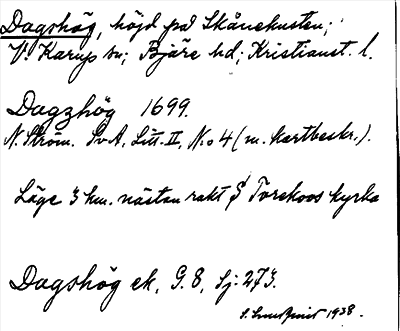 Dagshög, höjd på Skånekusten;
V. Karup sn; Bjäre hd; Kristianst. l.
Dagzhög 1699.
N. Ström. SvA, Litt. II, N:o 4 (m. kartbeskr.).
Läge 3 km. nästan rakt S Torekovs kyrka
Dagshög ek, G. 8, Sj: 273.
1938.